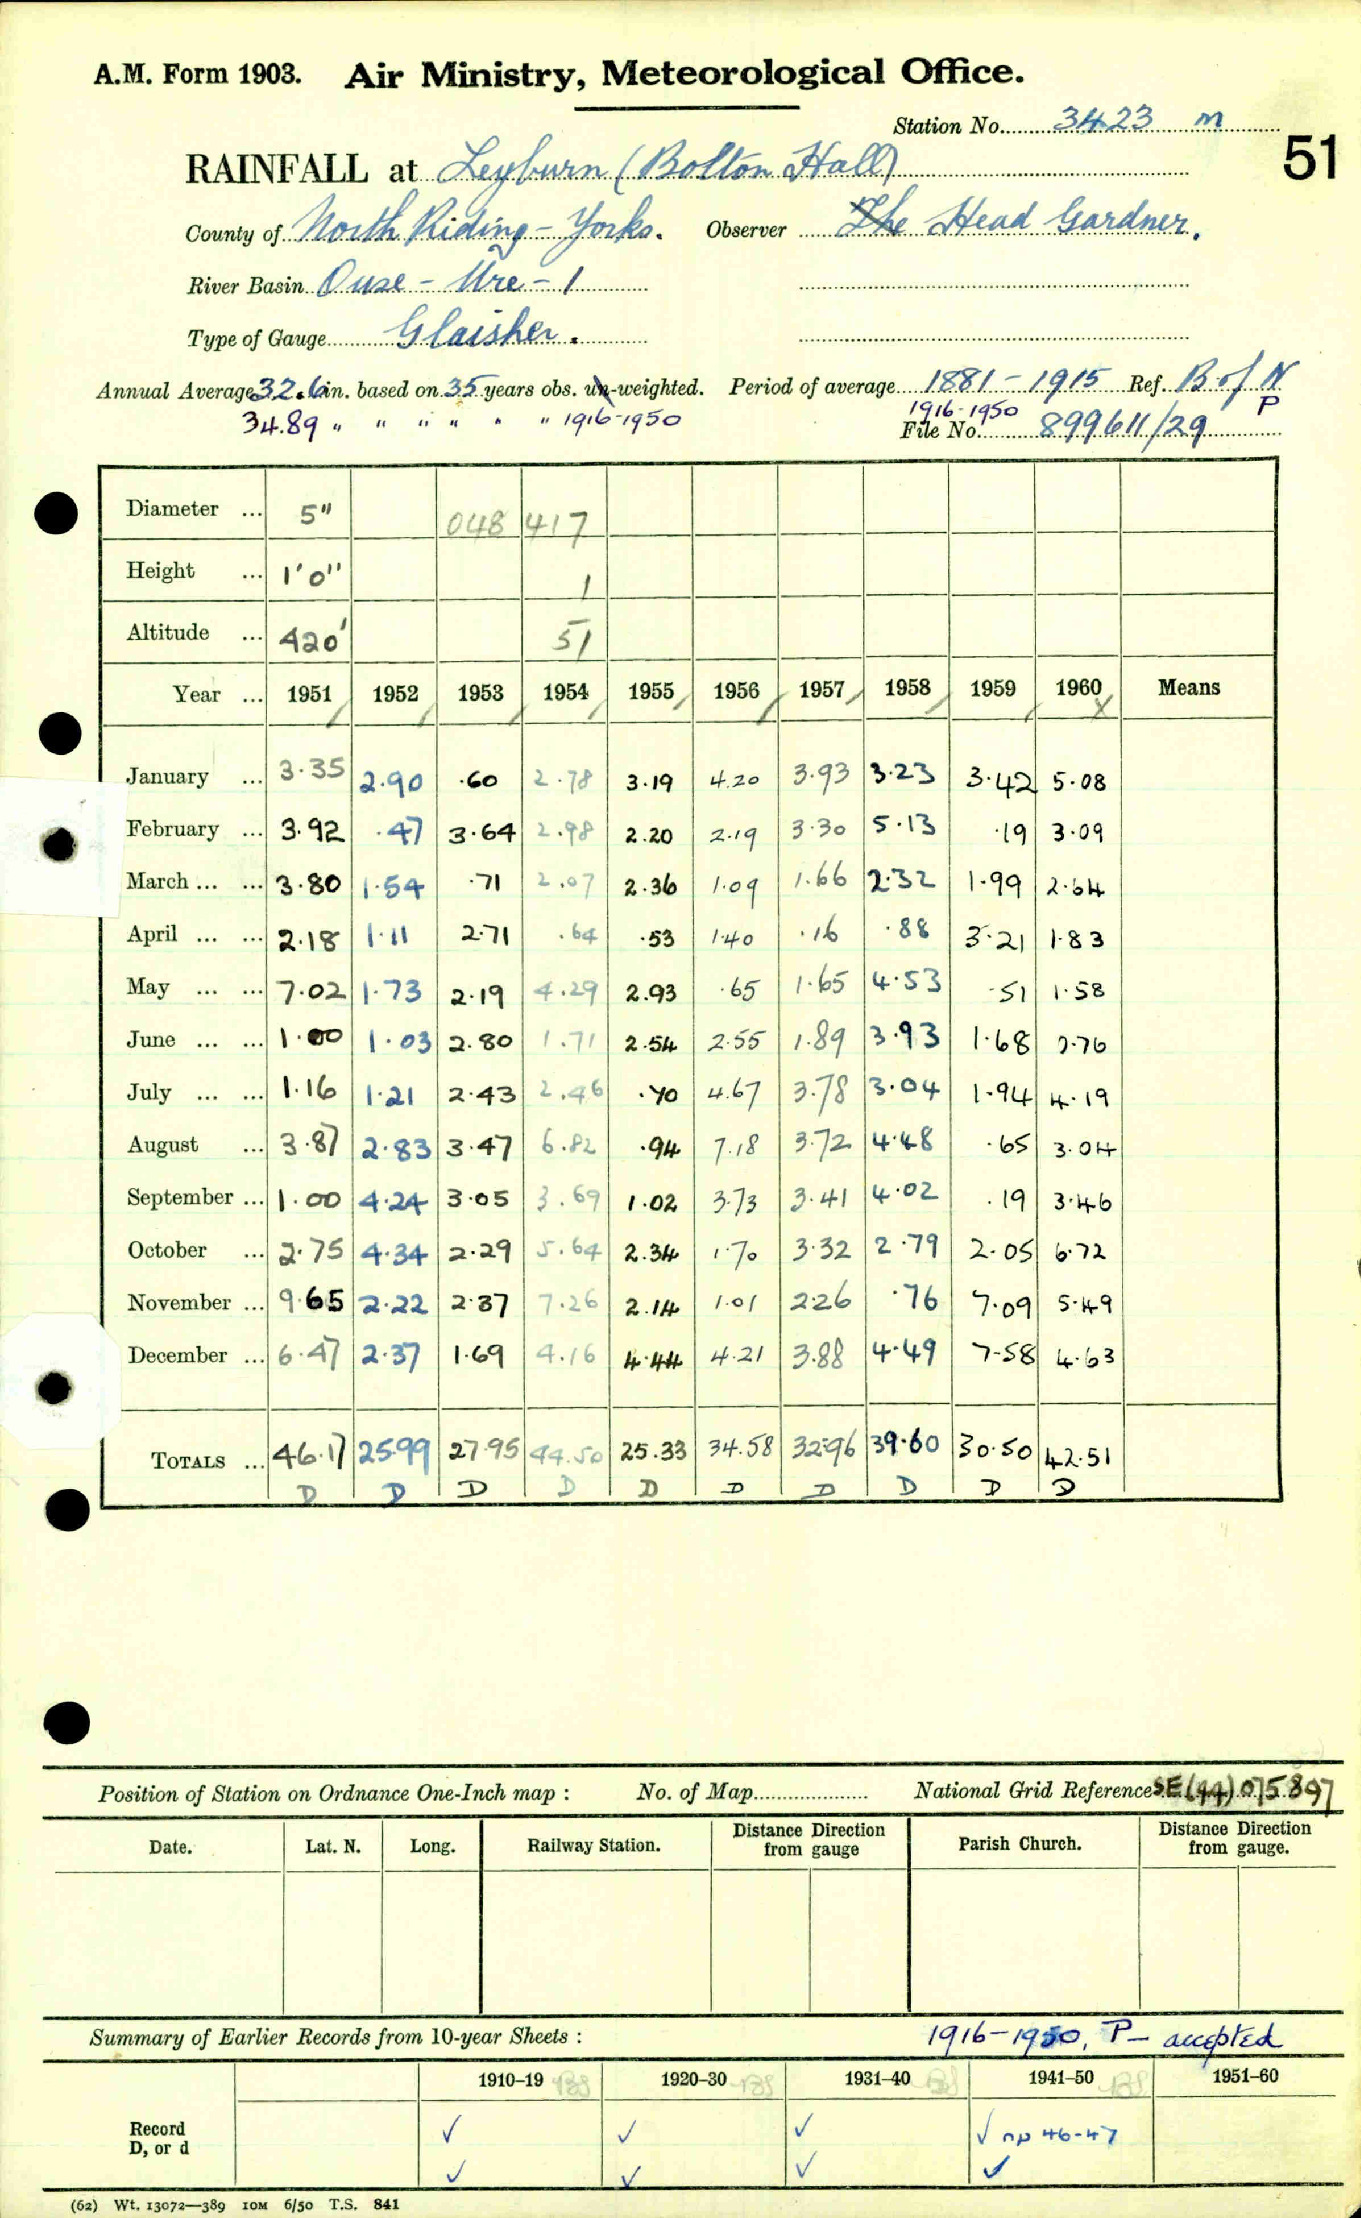 A.M. Form 1903. Air Ministry, Meteorological Office.
Station No. 3423 m
51
RAINFALL at Leyburn (Bolton Hall)
County of North Riding - Yorks. Observer The Head Gardner.
River Basin Ouse - Ure - 1
Type of Gauge Glaisher.
Annual Average 32.6 in. based on 35 years obs. un-weighted. Period of average 1881 - 1915 Ref. B of N
34.89 " " " " " " 1916-1950 1916-1950 P
File No. 899611/29
Diameter ... 5" 048 417
Height ... 1'0" 1
Altitude ... 420' 51
Year ... 1951 1952 1953 1954 1955 1956 1957 1958 1959 1960 Means
January ... 3.35 2.90 .60 2.78 3.19 4.20 3.93 3.23 3.42 5.08
February ... 3.92 .47 3.64 2.98 2.20 2.19 3.30 5.13 .19 3.09
March ... ... 3.80 1.54 .71 2.07 2.36 1.09 1.66 2.32 1.99 2.64
April ... ... 2.18 1.11 2.71 .64 .53 1.40 .16 .88 3.21 1.83
May ... ... 7.02 1.73 2.19 4.29 2.93 .65 1.65 4.53 .51 1.58
June ... ... 1.00 1.03 2.80 1.71 2.54 2.55 1.89 3.93 1.68 0.76
July ... ... 1.16 1.21 2.43 2.46 .70 4.67 3.78 3.04 1.94 4.19
August ... 3.87 2.83 3.47 6.82 .94 7.18 3.72 4.48 .65 3.04
September ... 1.00 4.24 3.05 3.69 1.02 3.73 3.41 4.02 .19 3.46
October ... 2.75 4.34 2.29 5.64 2.34 1.70 3.32 2.79 2.05 6.72
November ... 9.65 2.22 2.37 7.26 2.14 1.01 2.26 .76 7.09 5.49
December ... 6.47 2.37 1.69 4.16 4.44 4.21 3.88 4.49 7.58 4.63
TOTALS ... 46.17 25.99 27.95 44.50 25.33 34.58 32.96 39.60 30.50 42.51
D D D D D D D D D D
Position of Station on Ordnance One-Inch map : No. of Map National Grid Reference SE(44) 075897
Date. Lat. N. Long. Railway Station. Distance Direction from gauge Parish Church. Distance Direction from gauge.
Summary of Earlier Records from 10-year Sheets : 1916-1950, P - accepted
1910-19 BS 1920-30 BS 1931-40 BS 1941-50 BS 1951-60
Record ✓ ✓ ✓ ✓ np 46-47
D, or d ✓ ✓ ✓ ✓
(62) Wt. 13072—389 10M 6/50 T.S. 841